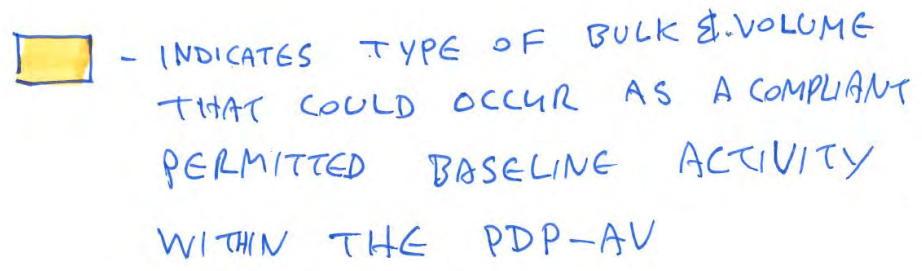 - INDICATES TYPE OF BULK & VOLUME
THAT COULD OCCUR AS A COMPLIANT
PERMITTED BASELINE ACTIVITY
WITHIN THE PDP-AV